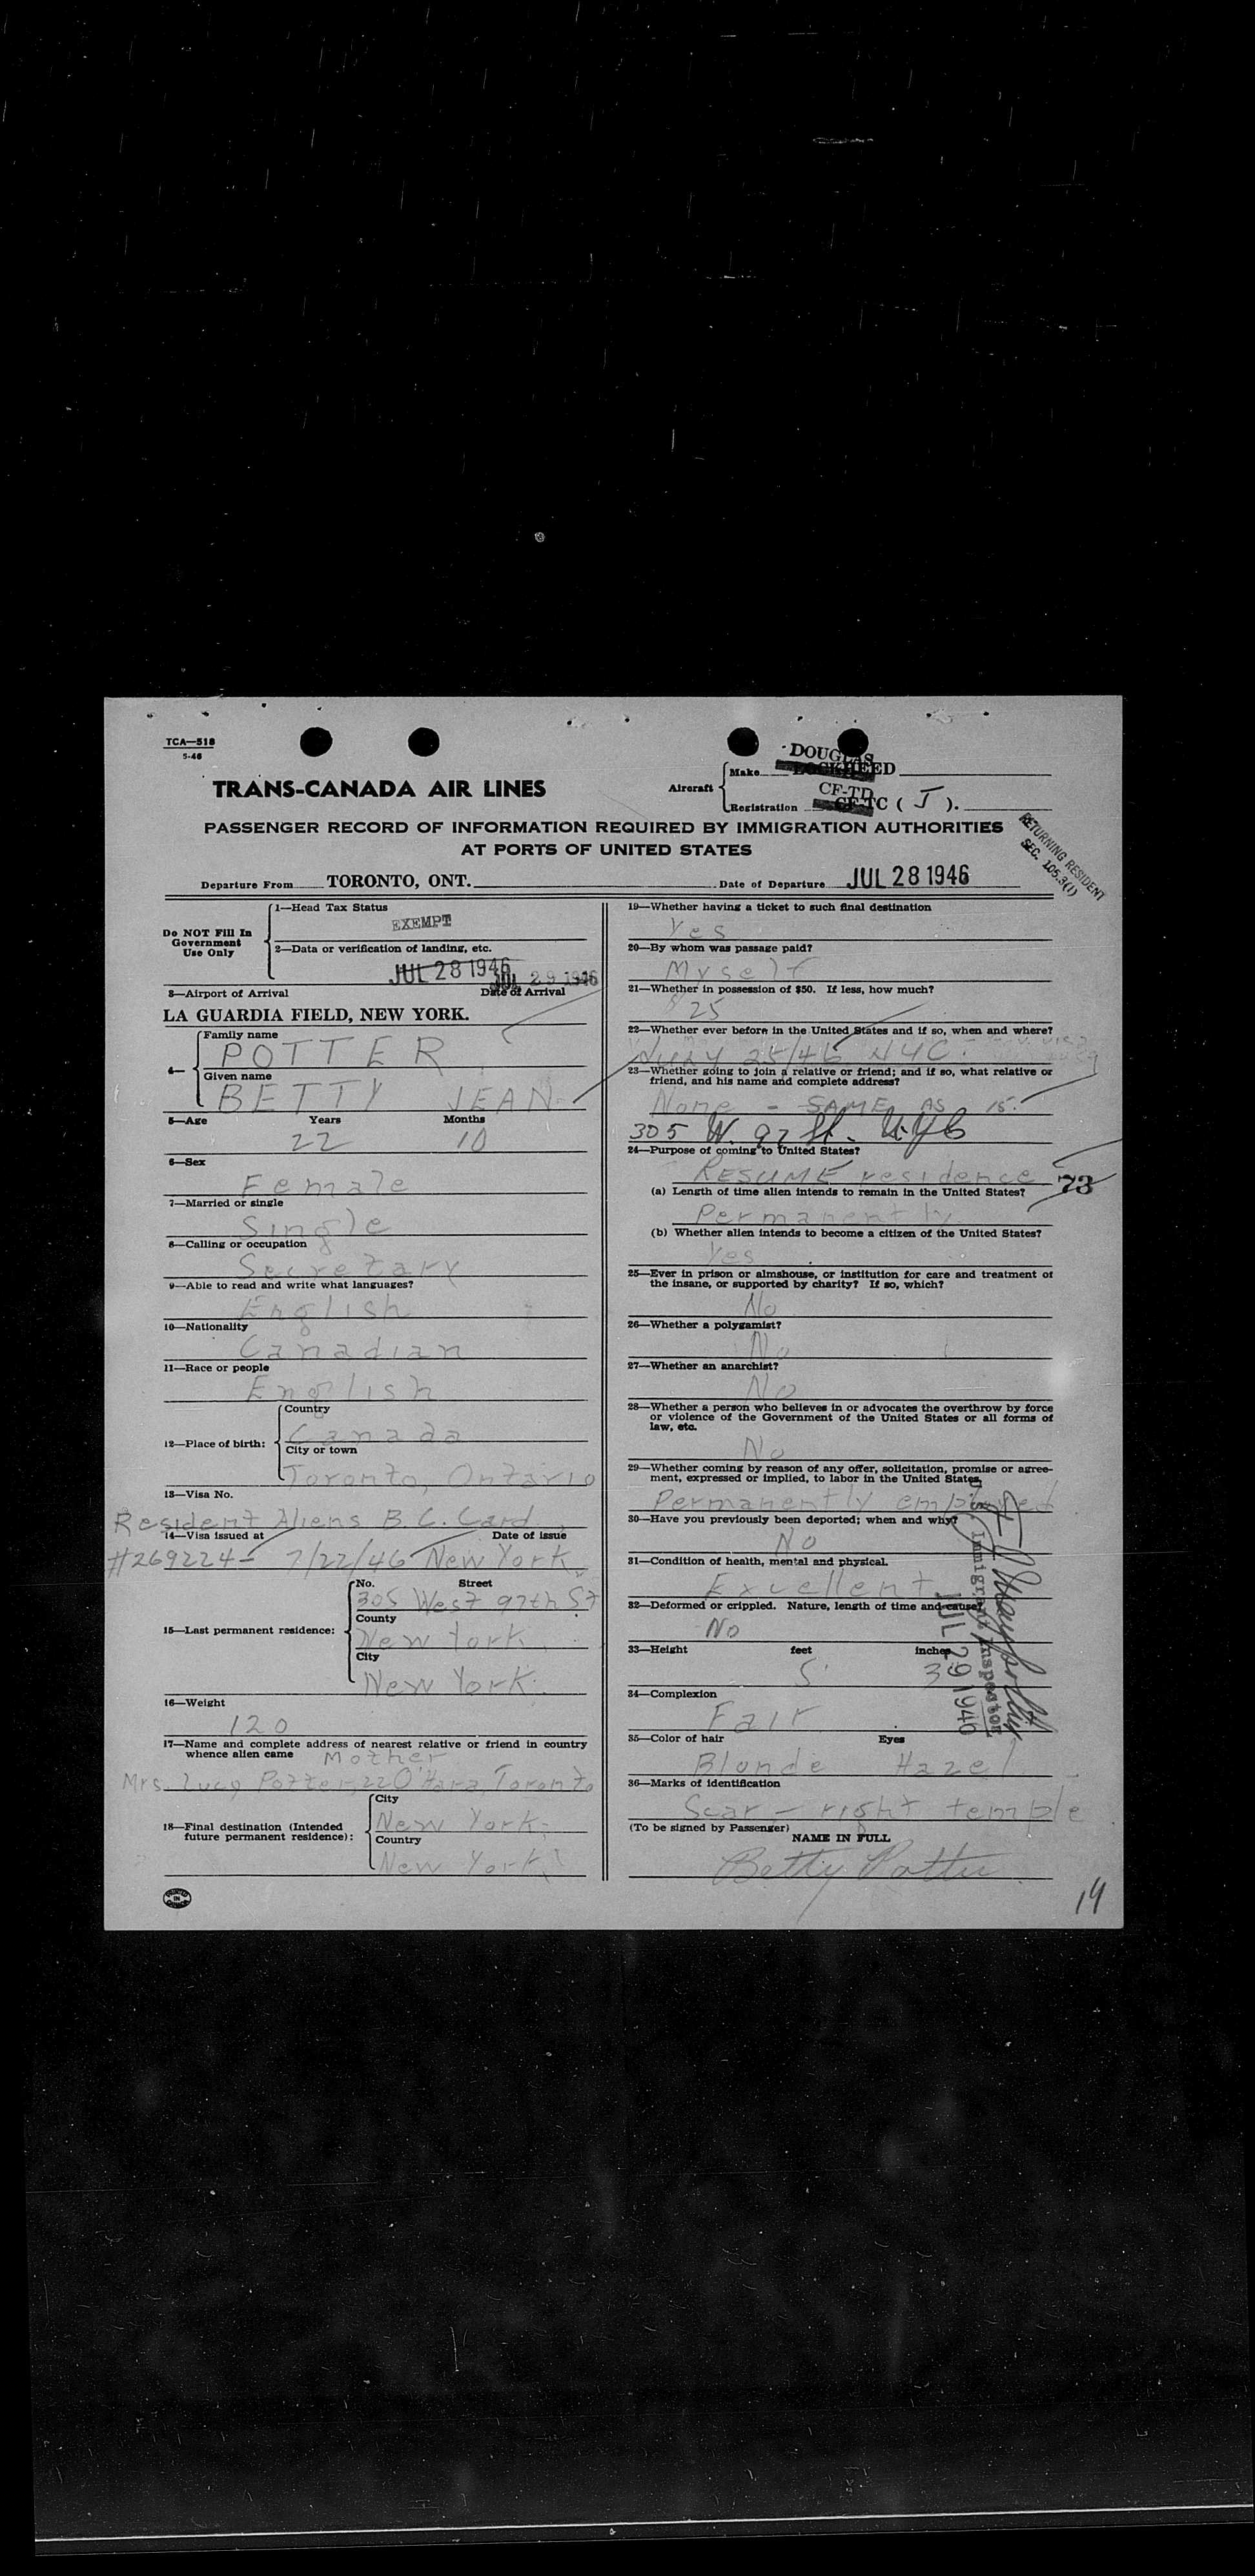 TCA—518
5-46
DOUGLAS
Make LOCKHEED
TRANS-CANADA AIR LINES
Aircraft
CF-TD
Registration CF-TC ( J ).
PASSENGER RECORD OF INFORMATION REQUIRED BY IMMIGRATION AUTHORITIES
AT PORTS OF UNITED STATES
RETURNING RESIDENT
SEC. 105.3(1)
Departure From TORONTO, ONT. Date of Departure JUL 28 1946
Do NOT Fill In
Government
Use Only
1—Head Tax Status
EXEMPT
2—Data or verification of landing, etc.
JUL 28 1946 JUL 29 1946
3—Airport of Arrival Date of Arrival
LA GUARDIA FIELD, NEW YORK.
4—
Family name
POTTER
Given name
BETTY JEAN
5—Age Years Months
22 10
6—Sex
Female
7—Married or single
Single
8—Calling or occupation
Secretary
9—Able to read and write what languages?
English
10—Nationality
Canadian
11—Race or people
English
12—Place of birth:
Country
Canada
City or town
Toronto, Ontario
13—Visa No.
Resident Aliens B.C. Card
14—Visa issued at Date of issue
#269224— 7/22/46 New York
15—Last permanent residence:
No. Street
305 West 97th St
County
New York
City
New York
16—Weight
120
17—Name and complete address of nearest relative or friend in country
whence alien came Mother
Mrs. Lucy Potter, 22 O'Hara, Toronto
18—Final destination (Intended
future permanent residence):
City
New York
Country
New York
PRINTED IN CANADA
19—Whether having a ticket to such final destination
Yes
20—By whom was passage paid?
Myself
21—Whether in possession of $50. If less, how much?
$25
22—Whether ever before in the United States and if so, when and where?
25/46 NYC.
23—Whether going to join a relative or friend; and if so, what relative or
friend, and his name and complete address?
None - SAME AS 15.
305 W. 97 St. NYC
24—Purpose of coming to United States?
RESUME residence
73
(a) Length of time alien intends to remain in the United States?
Permanently
(b) Whether alien intends to become a citizen of the United States?
Yes
25—Ever in prison or almshouse, or institution for care and treatment of
the insane, or supported by charity? If so, which?
No
26—Whether a polygamist?
No
27—Whether an anarchist?
No
28—Whether a person who believes in or advocates the overthrow by force
or violence of the Government of the United States or all forms of
law, etc.
No
29—Whether coming by reason of any offer, solicitation, promise or agree-
ment, expressed or implied, to labor in the United States.
Permanently employed
30—Have you previously been deported; when and why?
No
31—Condition of health, mental and physical.
Excellent
32—Deformed or crippled. Nature, length of time and cause?
No
33—Height feet inches
5' 3
34—Complexion
Fair
35—Color of hair Eyes
Blonde Hazel
36—Marks of identification
Scar — right temple
(To be signed by Passenger)
NAME IN FULL
Betty Potter
U.S. Immigrant Inspector
JUL 29 1946
14